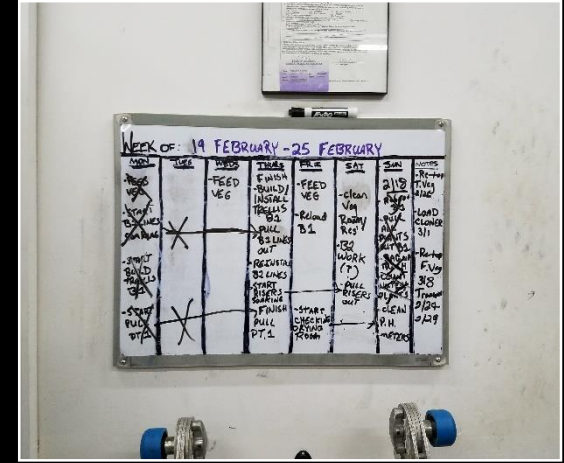 WEEK OF: 19 FEBRUARY - 25 FEBRUARY
MON TUES WEDS THURS FRI SAT SUN NOTES
-FEED
VEG
-START
B2 LINES
-START
BUILD
TRELLIS
B2
-START
PULL
PT.1
-FEED
VEG
FINISH
-BUILD/
INSTALL
TRELLIS
B1
-PULL
B2 LINES
OUT
B2 LINES
-START
RISERS
SOAKING
-FINISH
PULL
PT.1
-FEED
VEG
-Reload
B1
-START
CHECKING
DRYING
ROOM
-clean
Veg
Room/
Res
-B2
WORK
(T)
-PULL
RISERS
OUT
2/18
-CLEAN
P.H.
METERS
-Re-top
T.Veg
-LOAD
CLONER
3/1
-Re-top
F.Veg
3/8
2/29